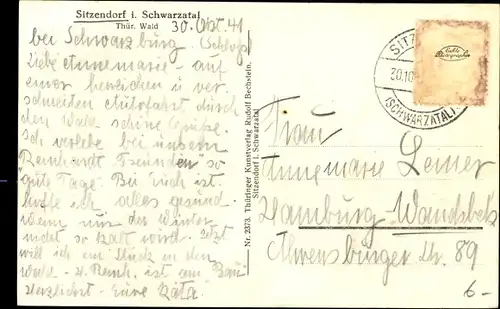 Sitzendorf i. Schwarzatal
Thür. Wald 30. Okt. 41
bei Schwarzburg (Schloß)
Liebe Annemarie - auf
einer herrlichen u ver
schneiten Autofahrt durch
den Wald schöne Grüße.
Ich verlebe bei unsern
Reinhardt Freunden so
"gute Tage". Bei Euch ist
hoffe ich alles gesund.
Wenn nur der Winter
nicht so kalt wird. Jetzt
will ich ein Stück in den
Wald - H. Reinh. ist am Bau
Herzlichst - Eure Käta.
Nr. 2373. Thüringer Kunstverlag Rudolf Bechstein,
Sitzendorf i. Schwarzatal
SITZ
30.10
(SCHWARZATAL)
Echte
Photographie
Frau
Annemarie
Hamburg Wandsbek
Ahrensburger Str. 89
6-